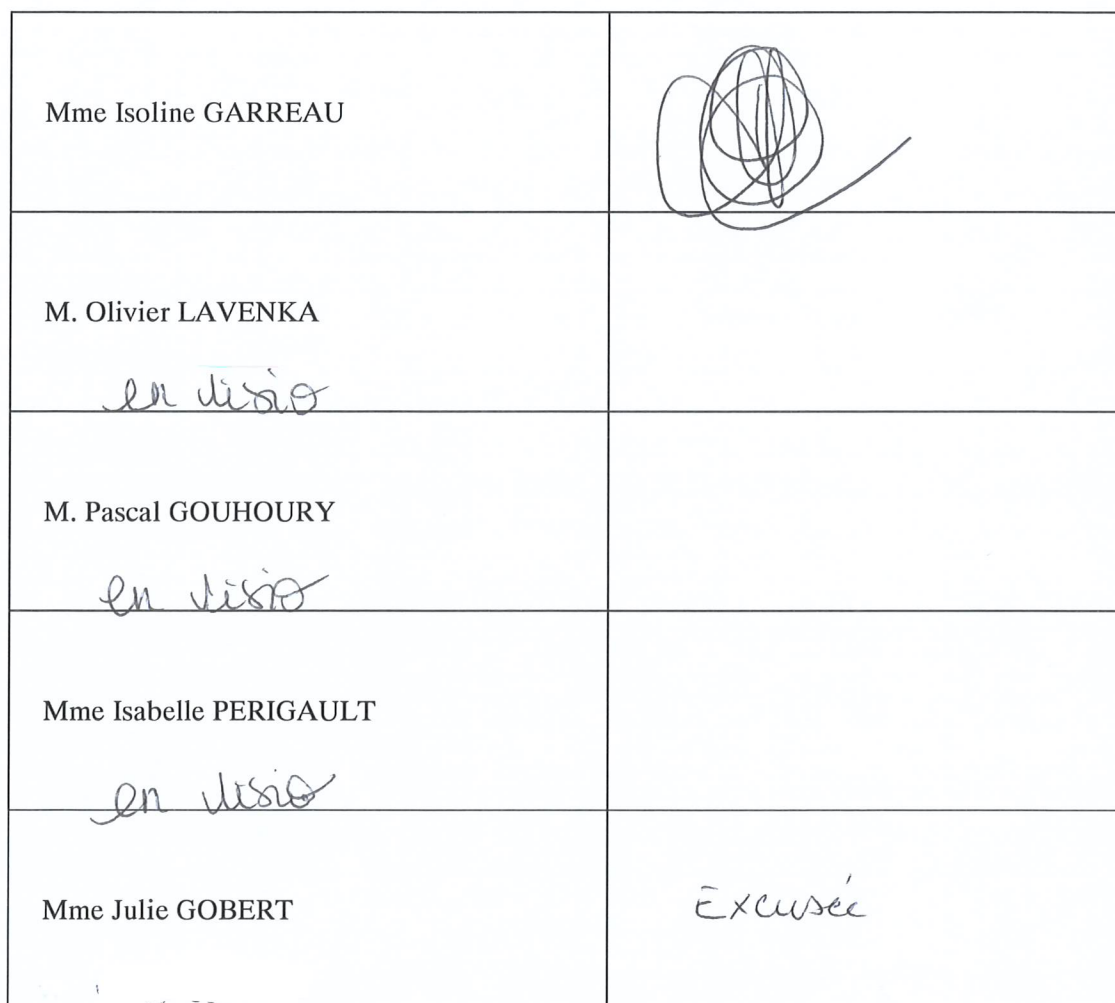 Mme Isoline GARREAU
M. Olivier LAVENKA
en visio
M. Pascal GOUHOURY
en visio
Mme Isabelle PERIGAULT
en visio
Mme Julie GOBERT
Excusée